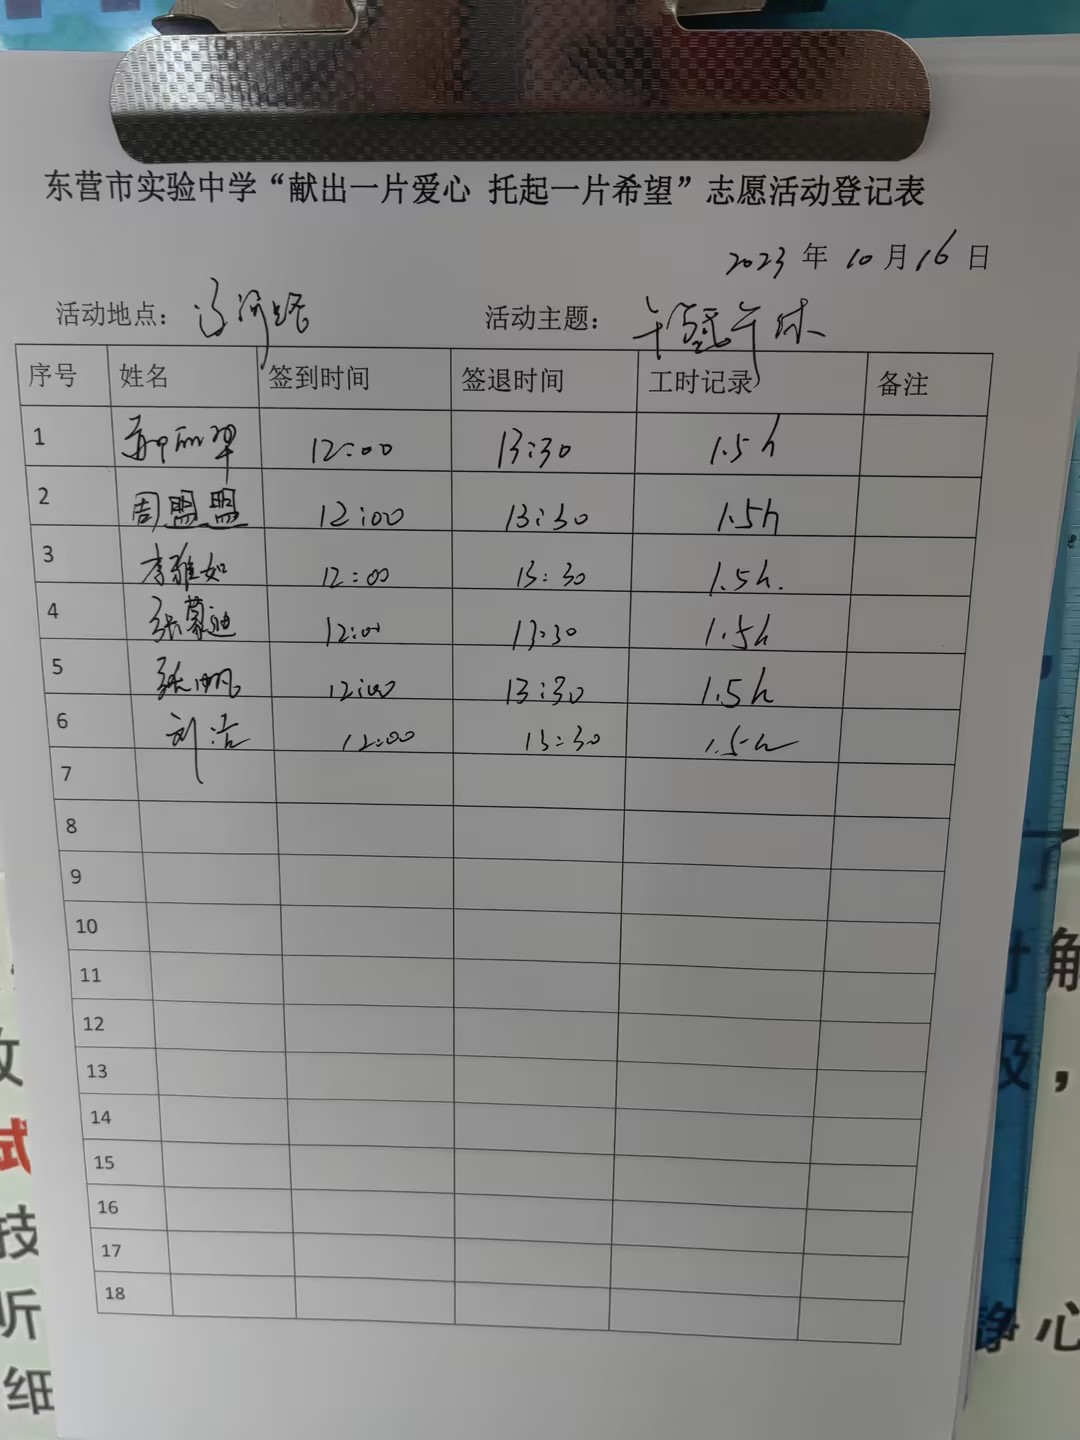 东营市实验中学“献出一片爱心 托起一片希望”志愿活动登记表
2023 年 10 月 16 日
活动地点： 辽河路 活动主题： 午餐午休
序号 姓名 签到时间 签退时间 工时记录 备注
1 12:00 13:30 1.5h
2 周盟盟 12:00 13:30 1.5h
3 李雅如 12:00 13:30 1.5h.
4 张蒙迪 12:00 13:30 1.5h
5 张帆 12:00 13:30 1.5h
6 刘洁 12:00 13:30 1.5h
7
8
9
10
11
12
13
14
15
16
17
18
解
，
试
技
听
细
静心